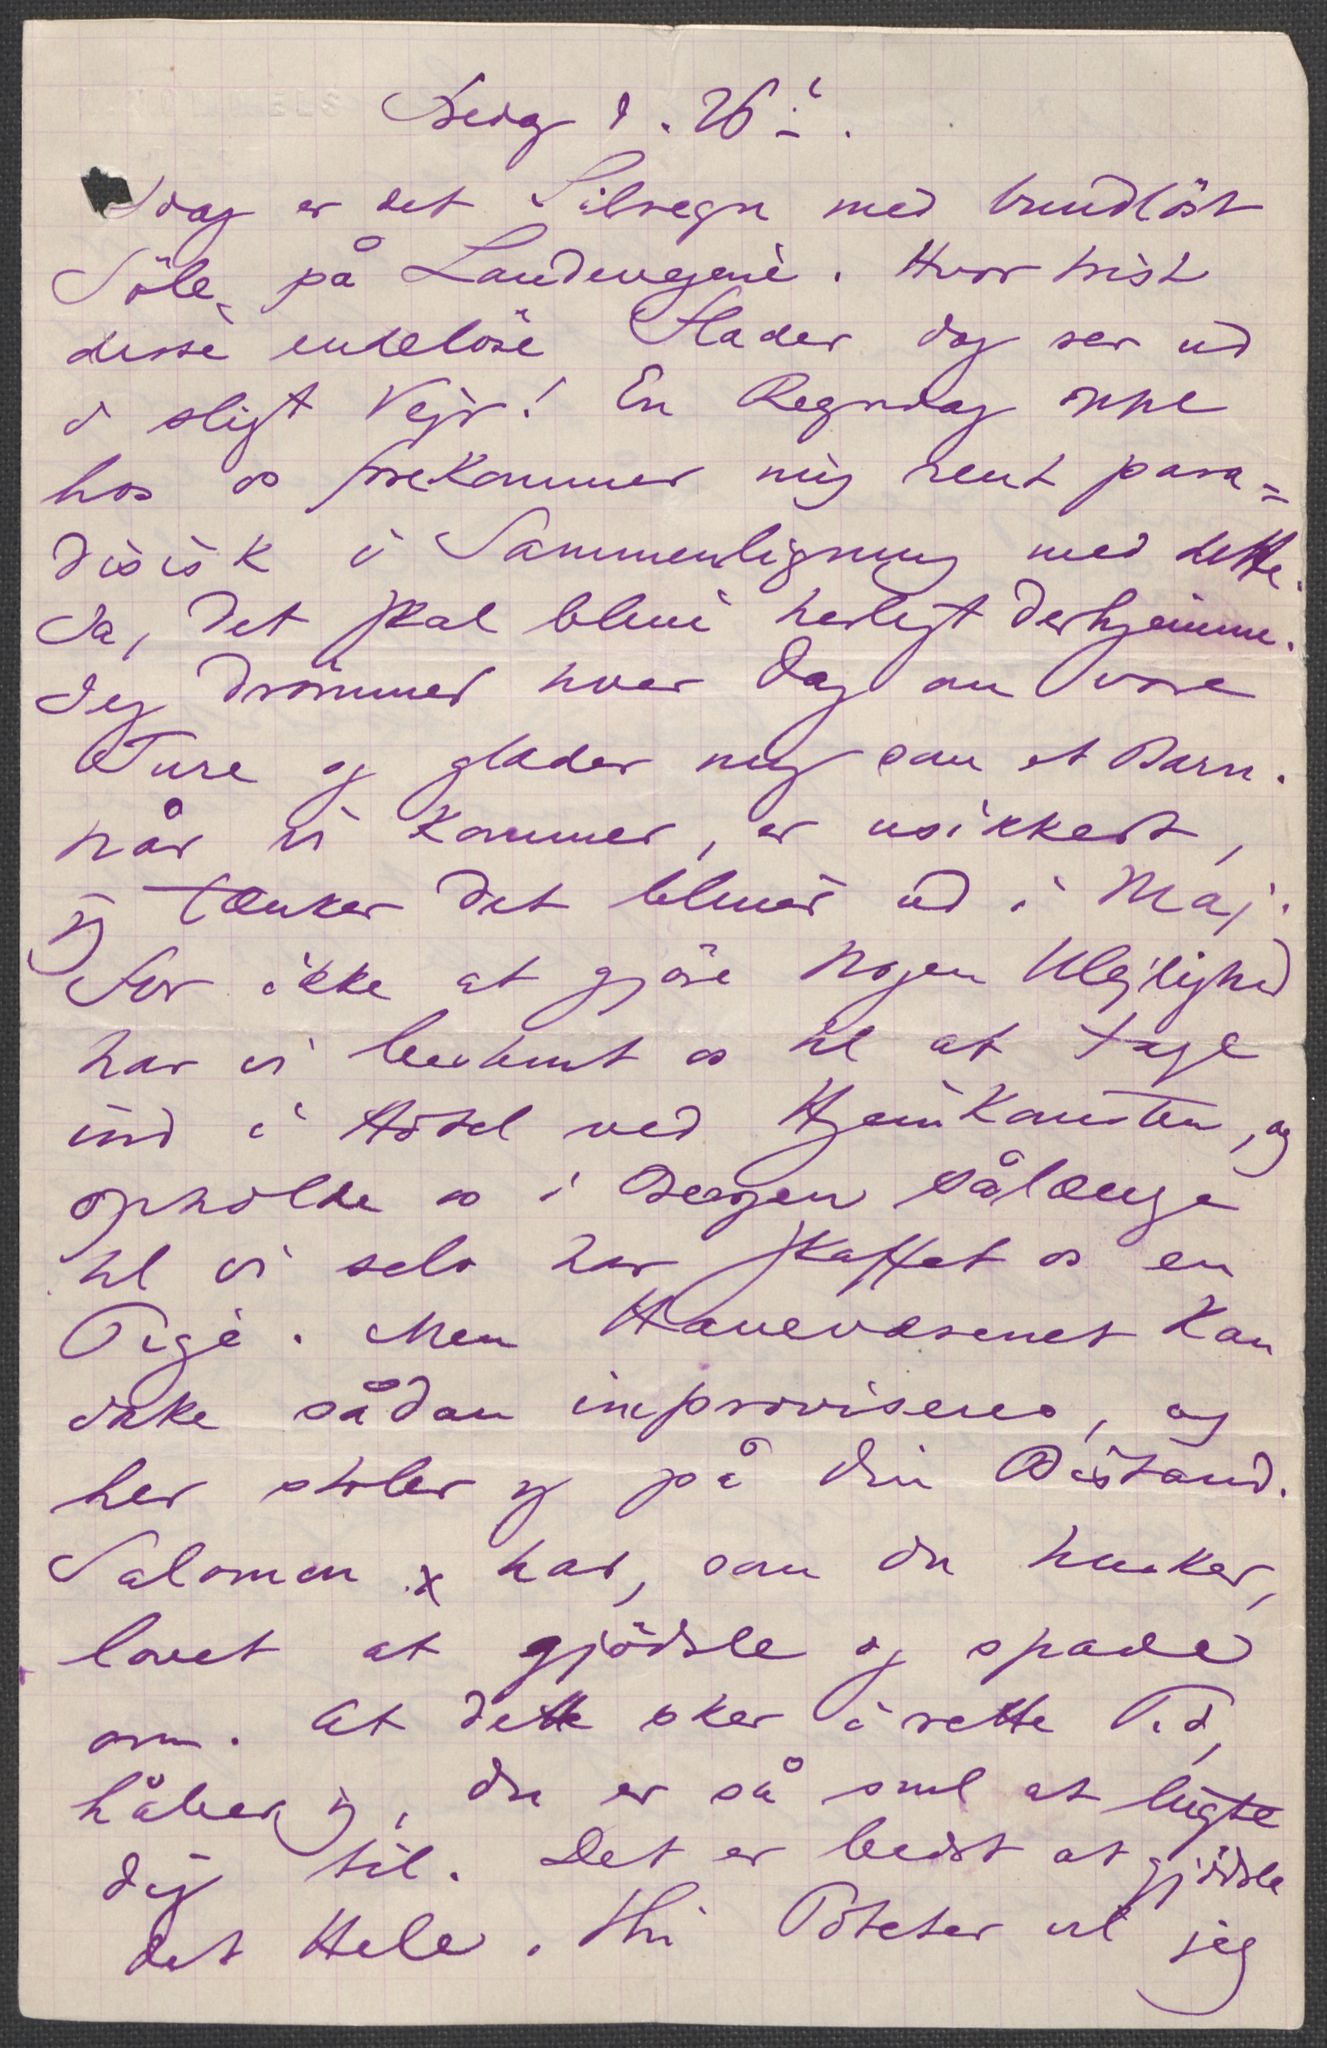 Fredag d. 26de.
Idag er det Silregn med bundlöst
Söle på Landevejene. Hvor trist
disse endelöse Slader dog ser ud
i sligt Vejr! En Regndag oppe
hos os forekommer mig rent para=
disisk i Sammenligning med dette.
Ja, det skal blive herligt derhjemme.
Jeg drömmer hver Dag om vore
Ture og glæder mig som et Barn.
når vi kommer, er usikkert,
jeg tænker det bliver ud i Maj.
For ikke at gjöre nogen Ulejlighed
har vi bestemt os til at tage
ind i Hotel ved Hjemkomsten, og
opholde os i Bergen sålænge
til vi selv har skaffet os en
Pige. Men Havevæsenet kan
ikke sådan improviseres, og
her stoler jeg på din Bistand.
Salomon x har, som du husker,
lovet at gjödsle og spade
om. At dette sker i rette Tid,
håber jeg, du er så snil at lugte
dig til. Det er bedst at gjödsle
det Hele. Thi Poteter vil jeg